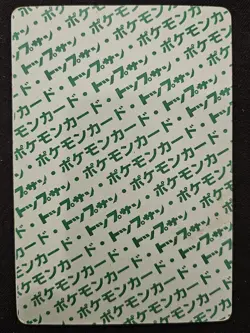 ・ポケモンカード・
・トップサン・ポケモンカード・
ポケモンカード・トップサン・ポケモンカード
・ポケモンカード・トップサン・ポケモンカード
トップサン・ポケモンカード・トップサン
ポケモンカード・トップサン・ポケモンカード
・ポケモンカード・トップサン・ポケモンカード
トップサン・ポケモンカード・トップサン
ポケモンカード・トップサン・ポケモンカード
・ポケモンカード・トップサン
ポケモンカード・トップサン
・ポケモンカード